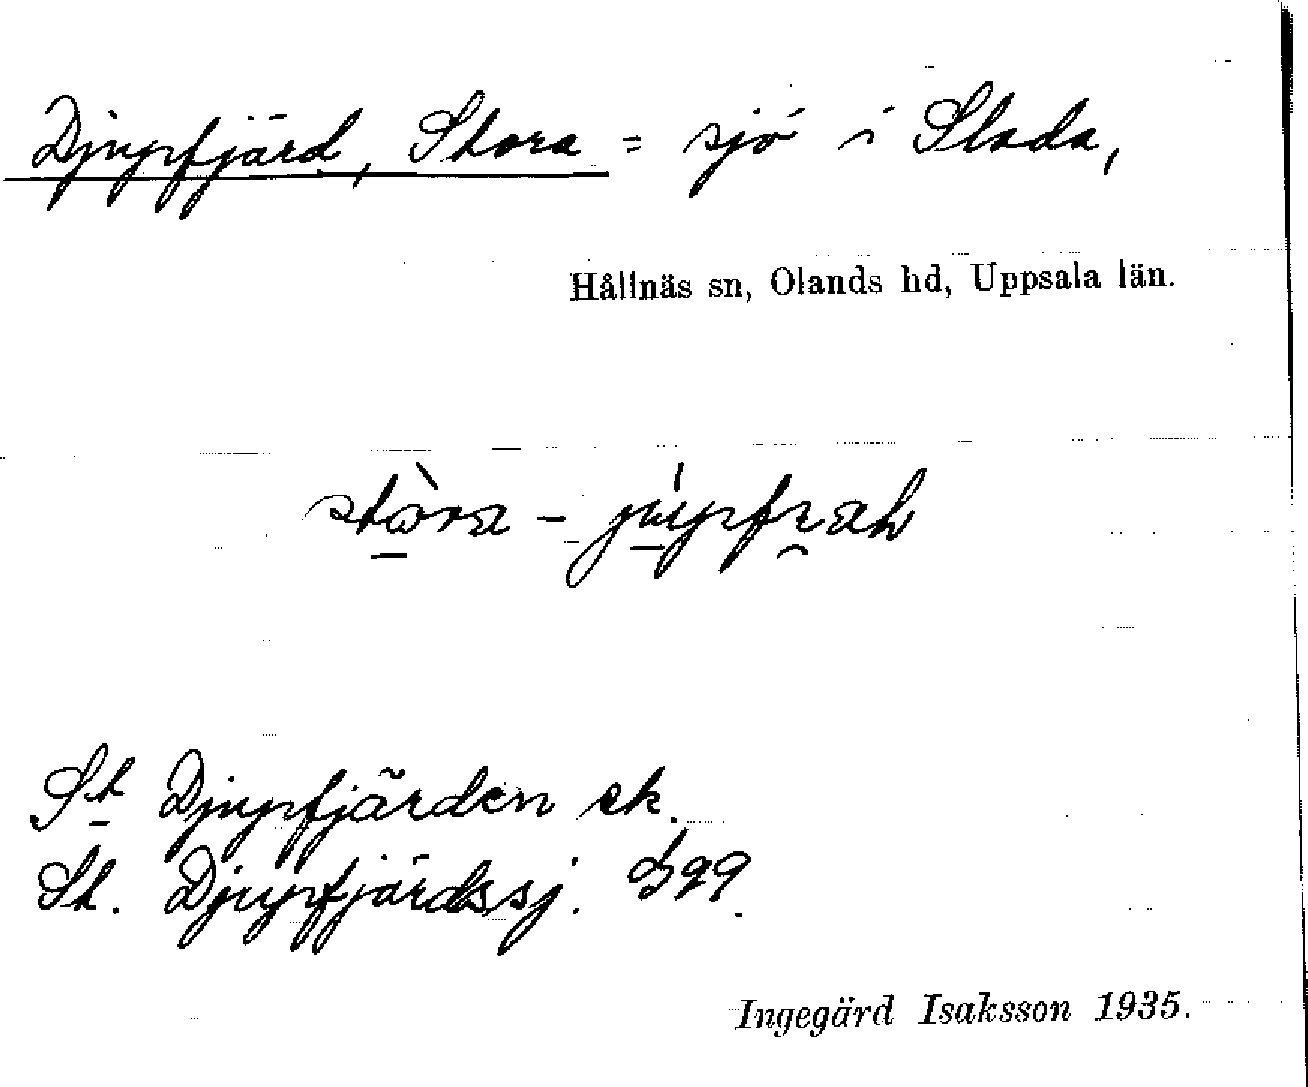 Djupfjärd, Stora = sjö i Slada,
Hållnäs sn, Olands hd, Uppsala län.
St Djupfjärden ek.
St. Djupfjärdssj.
Ingegärd Isaksson 1935.